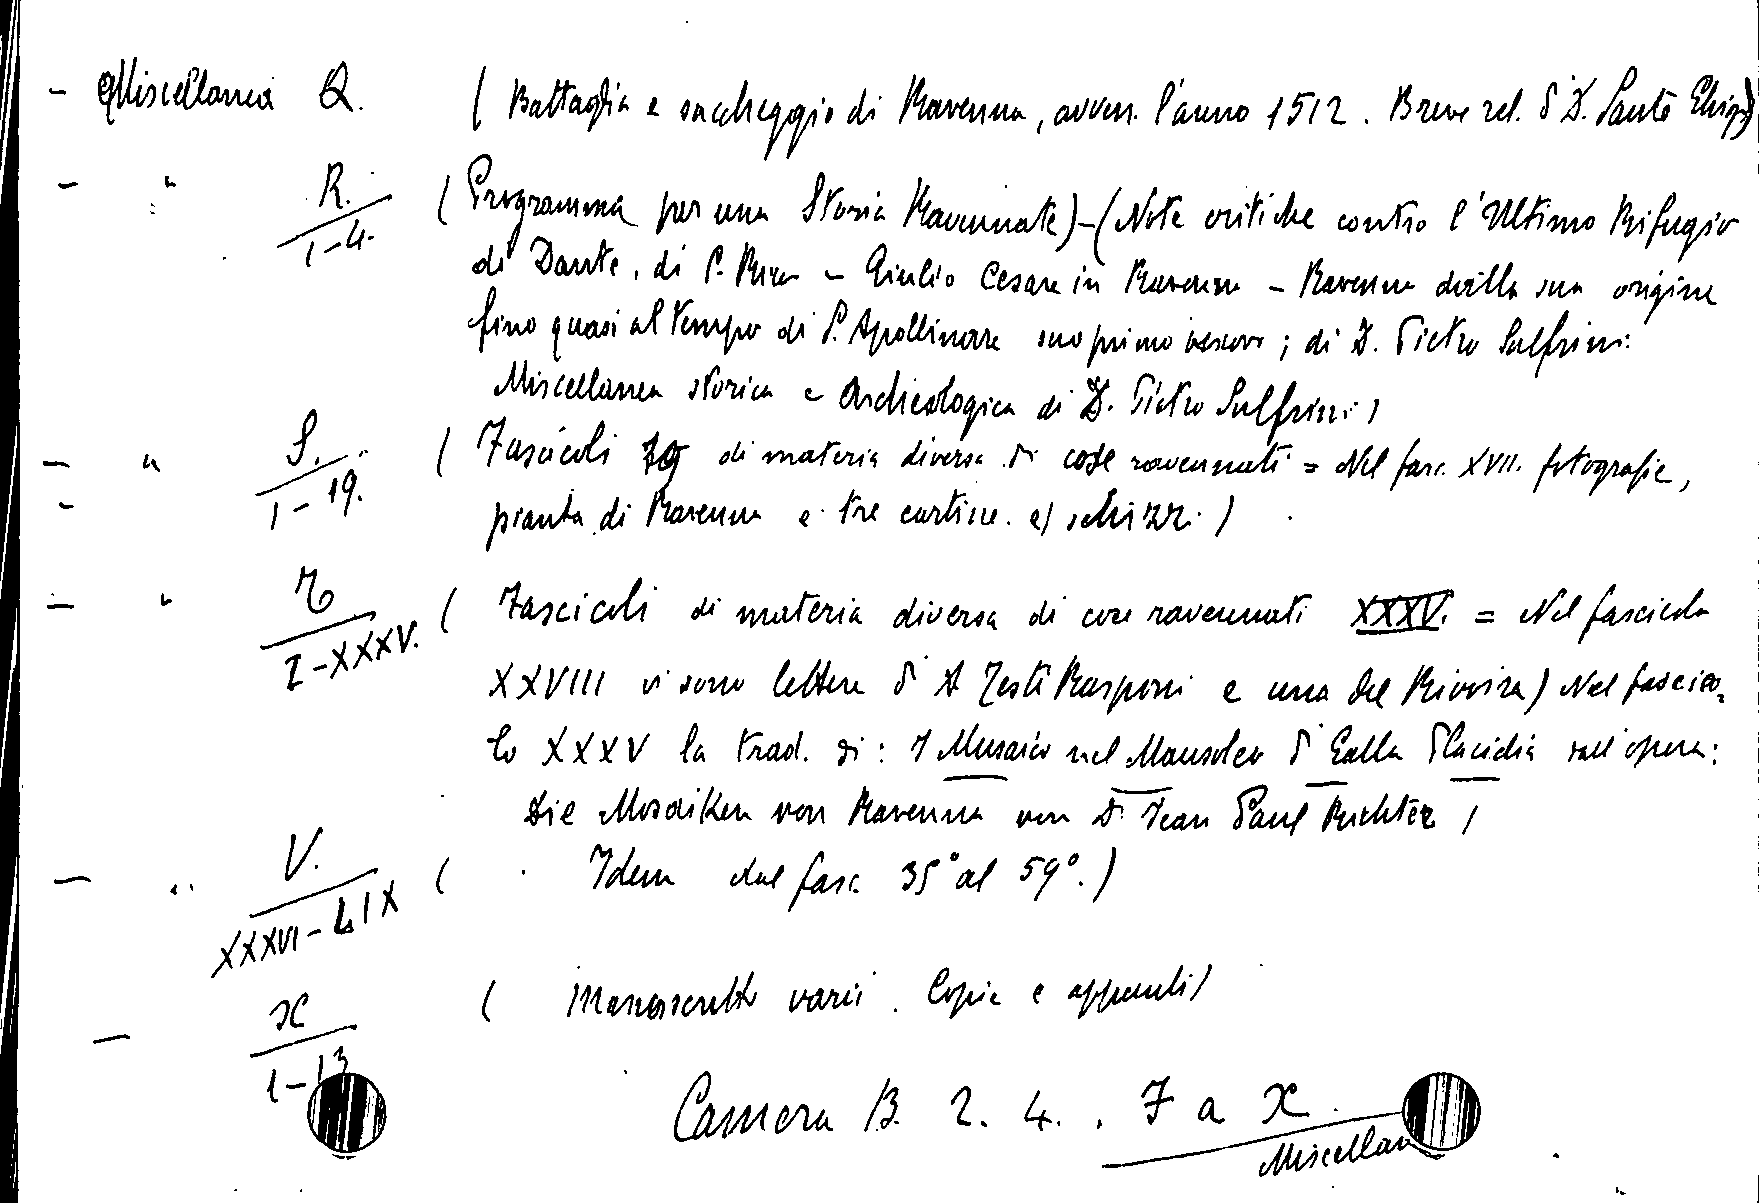 - Miscellanea Q. ( Battaglia e saccheggio di Ravenna, avven. l'anno 1512. Breve rel. di D. Sante Ghigi)
- " R. / 1-4. ( Programma per una Storia Ravennate) - (Note critiche contro l'Ultimo Rifugio
di Dante, di C. Ricci - Giulio Cesare in Ravenna - Ravenna dalla sua origine
fino quasi al tempo di S. Apollinare suo primo vescovo; di D. Pietro Sulfrini.
Miscellanea storica e Archeologica di D. Pietro Sulfrini)
- " S. / 1-19. ( Fascicoli 19 di materia diversa di cose ravennati = Nel fasc. XVII. fotografie,
pianta di Ravenna e tre cartine e schizzi )
- " T / I-XXXV. ( Fascicoli di materia diversa di cose ravennati XXXV. = Nel fascicolo
XXVIII vi sono lettere di A Testi Rasponi e una del Rivoira) Nel fascico=
lo XXXV la trad. di: I Musaici nel Mausoleo di Galla Placidia dall'opera:
Die Mosaiken von Ravenna von Dr Jean Paul Richter )
- " V. / XXXVI-LIX ( Idem dal fasc. 35° al 59°.)
- X / 1-13 ( Manoscritti varii. Copie e appunti)
Camera B. 2. 4. . F a X.
Miscellan